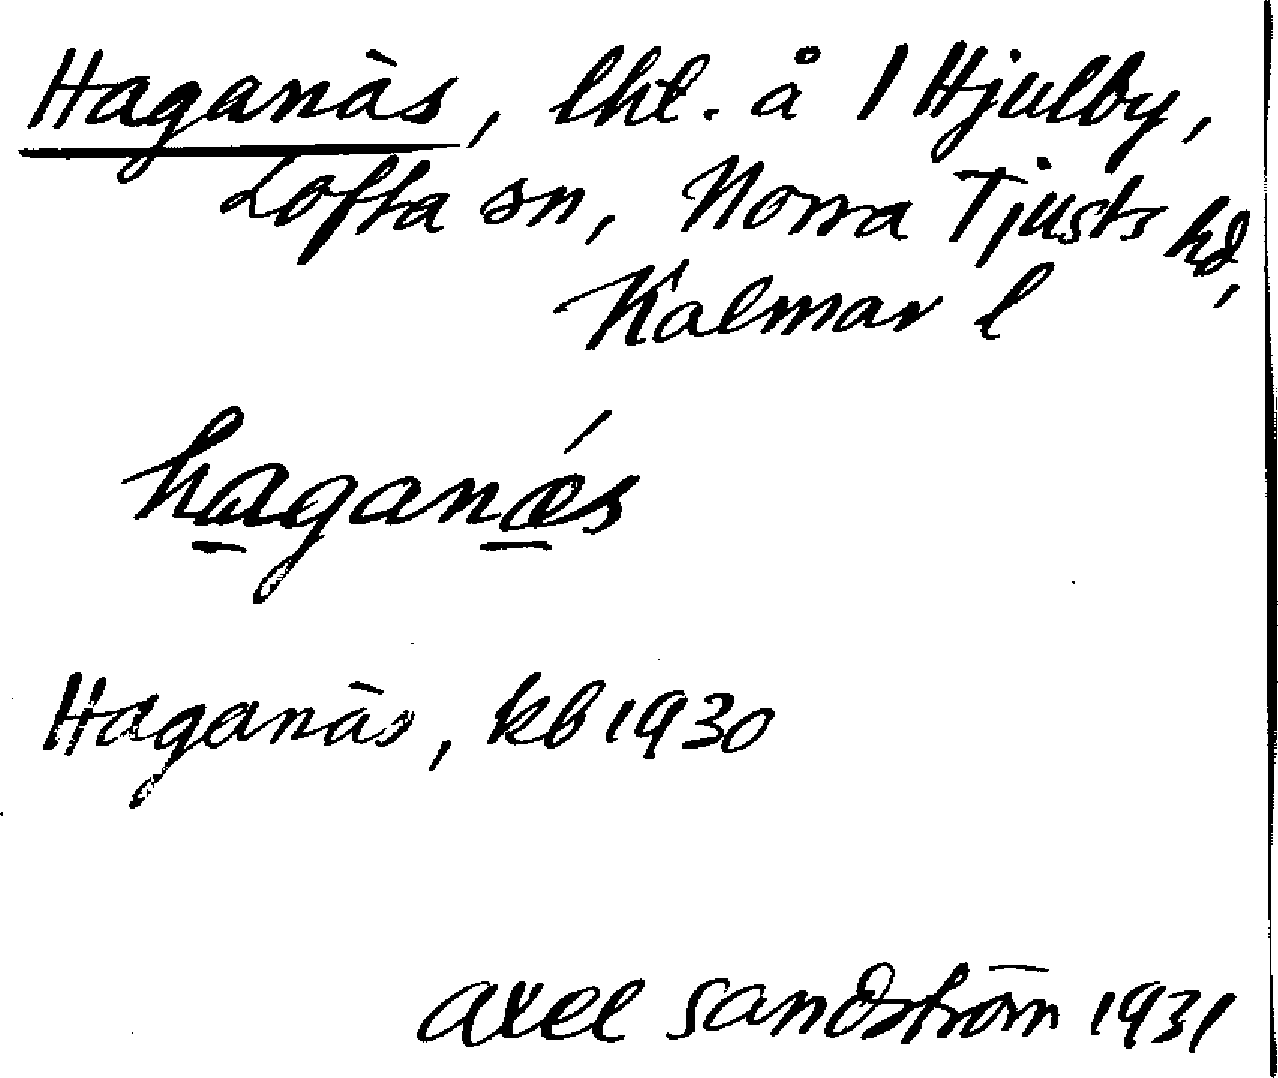 Haganäs, lht. å 1 Hjulby,
Lofta sn, Norra Tjusts hd,
Kalmar l
haganǽs
Haganäs, kb 1930
Axel Sandström 1931